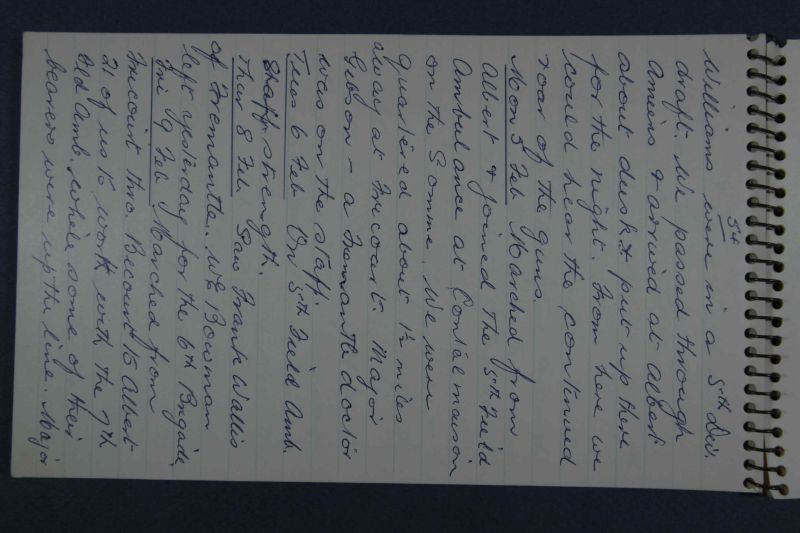 54
Williams were in a 5th Div.
draft. We passed through
Amiens & arrived at Albert
about dusk & put up there
for the night. From here we
could hear the continued
roar of the guns.
Mon 5 Feb Marched from
Albert & joined the 5th Field
Ambulance at Contalmaison
on the Somme. We were
quartered about 1½ miles
away at Fricourt. Major
Gibson - a Fremantle doctor
was on the staff.
Tues 6 Feb On 5th Field Amb.
Staff strength.
Thur 8 Feb Saw Frank Wallis
of Fremantle. W Bowman
left yesterday for the 6th Brigade.
Fri 9 Feb Marched from
Fricourt thro Becourt to Albert
21 of us to work with the 7th
Fld Amb. while some of their
bearers were up the line. Major